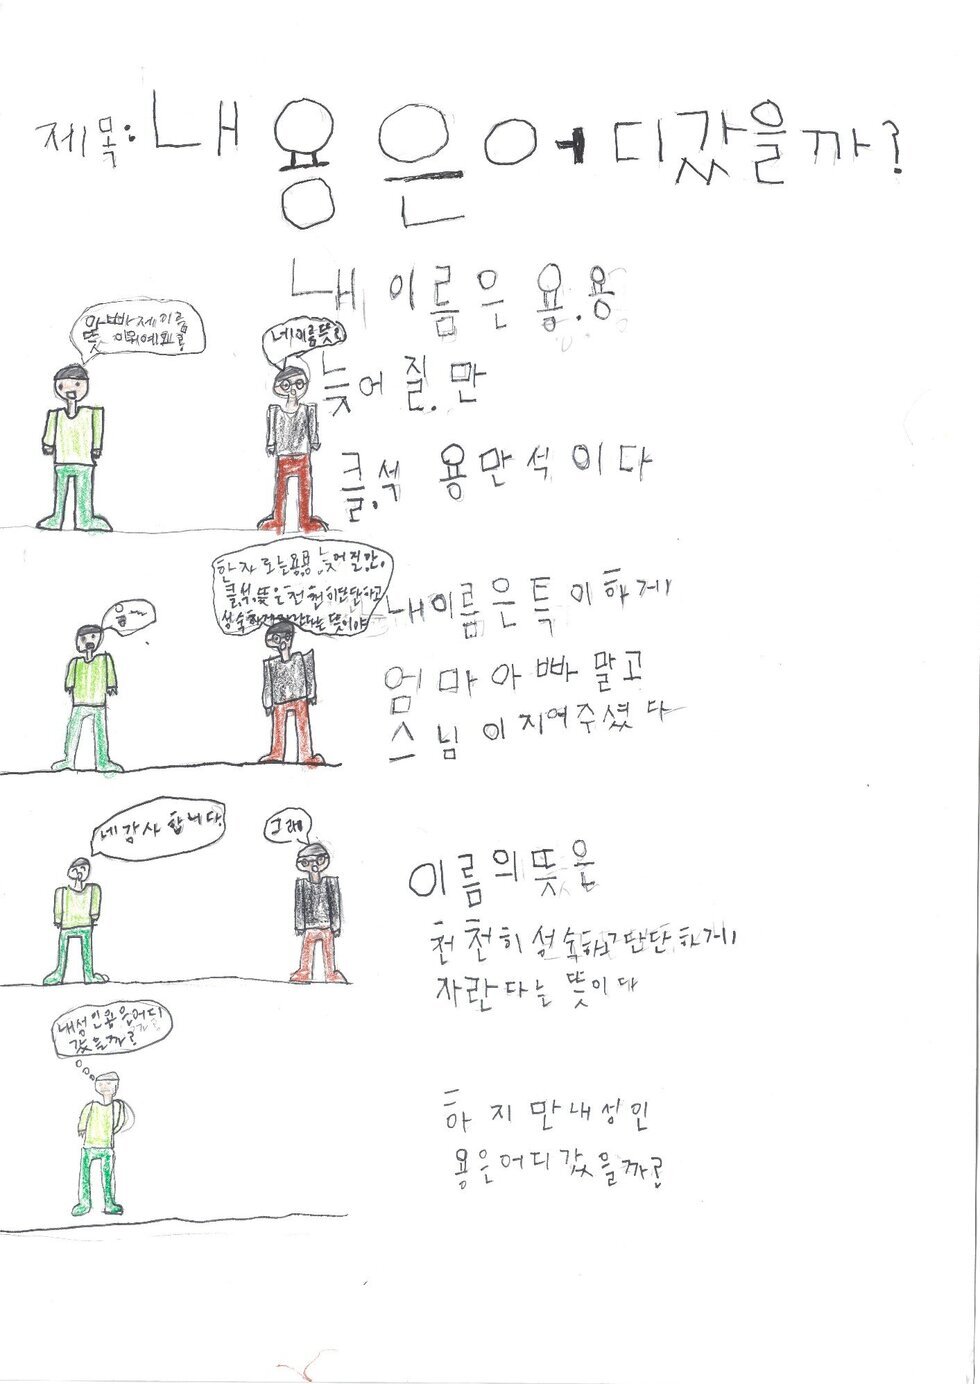 제목: 내 용은 어디갔을까?
내 이름은 용.용
늦어질.만
클.석 용만석이다
아빠제이름
뜻이뭐예요?
네이름뜻?
내이름은특이하게
엄마아빠말고
스님이지여주셨다
음~~
한자로는용.용, 늦어질.만,
클.석, 뜻은천천히단단하고
성숙하게자란다는뜻이야
이름의뜻은
천천히성숙하고단단하게
자란다는 뜻이다
네감사합니다.
그래!
하지만내성인
용은어디갔을까?
내성인용은어디
갔을까?